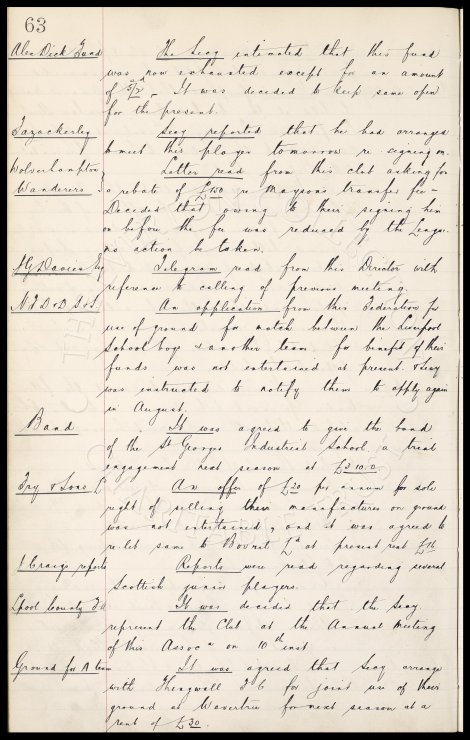 63
Alex Dick Fund The Secy intimated that this fund
was now exhausted except for an amount
of 5/2d. It was decided to keep same open
for the present.
Fazackerley Secy reported that he had arranged
to meet this player tomorrow re signing on.
Wolverhampton Letter read from this club asking for
Wanderers a rebate of £150 re Maysons transfer fee-
Decided that owing to their signing him
on before the fee was reduced by the League
no action be taken.
A G Davies Esq Telegram read from this Director with
reference to calling of previous meeting.
An application from this Federation for
use of ground for match between the Liverpool
School boys & another team for benefit of their
funds was not entertained at present. & Secy
was instructed to notify them to apply again
in August.
Band It was agreed to give the band
of the St Georges Industrial School a trial
engagement next season at £3 10.0.
Fry & Sons Ld An offer of £20 per annum for sole
right of selling their manufactures on ground
was not entertained, and it was agreed to
re-let same to Bovril Ld at present rent
J Craigs reports Reports were read regarding several
Scottish junior players.
Lpool County F.A It was decided that the Secy.
represent the Club at the Annual Meeting
of this Assocn on 10th inst
Ground for A team It was agreed that Secy arrange
with Thingwall F C for joint use of their
ground at Wavertree for next season at a
rent of £30.